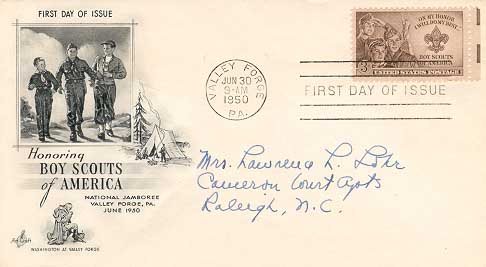 FIRST DAY OF ISSUE
Honoring
BOY SCOUTS
of AMERICA
NATIONAL JAMBOREE
VALLEY FORGE, PA.
JUNE 1950
ArtCraft
WASHINGTON AT VALLEY FORGE
VALLEY FORGE
JUN 30
9-AM
1950
PA.
"ON MY HONOR
I WILL DO MY BEST..."
3¢
BOY SCOUTS
OF AMERICA
UNITED STATES POSTAGE
FIRST DAY OF ISSUE
Mrs. Lawrence L. Lohr
Cameron Court Apts
Raleigh, N.C.